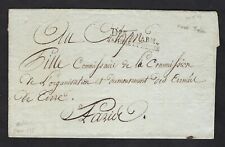 Au Citoyen
Pille Commissaire de la Commission
de L'organisation et du mouvement des Armées
de Terre
Paris